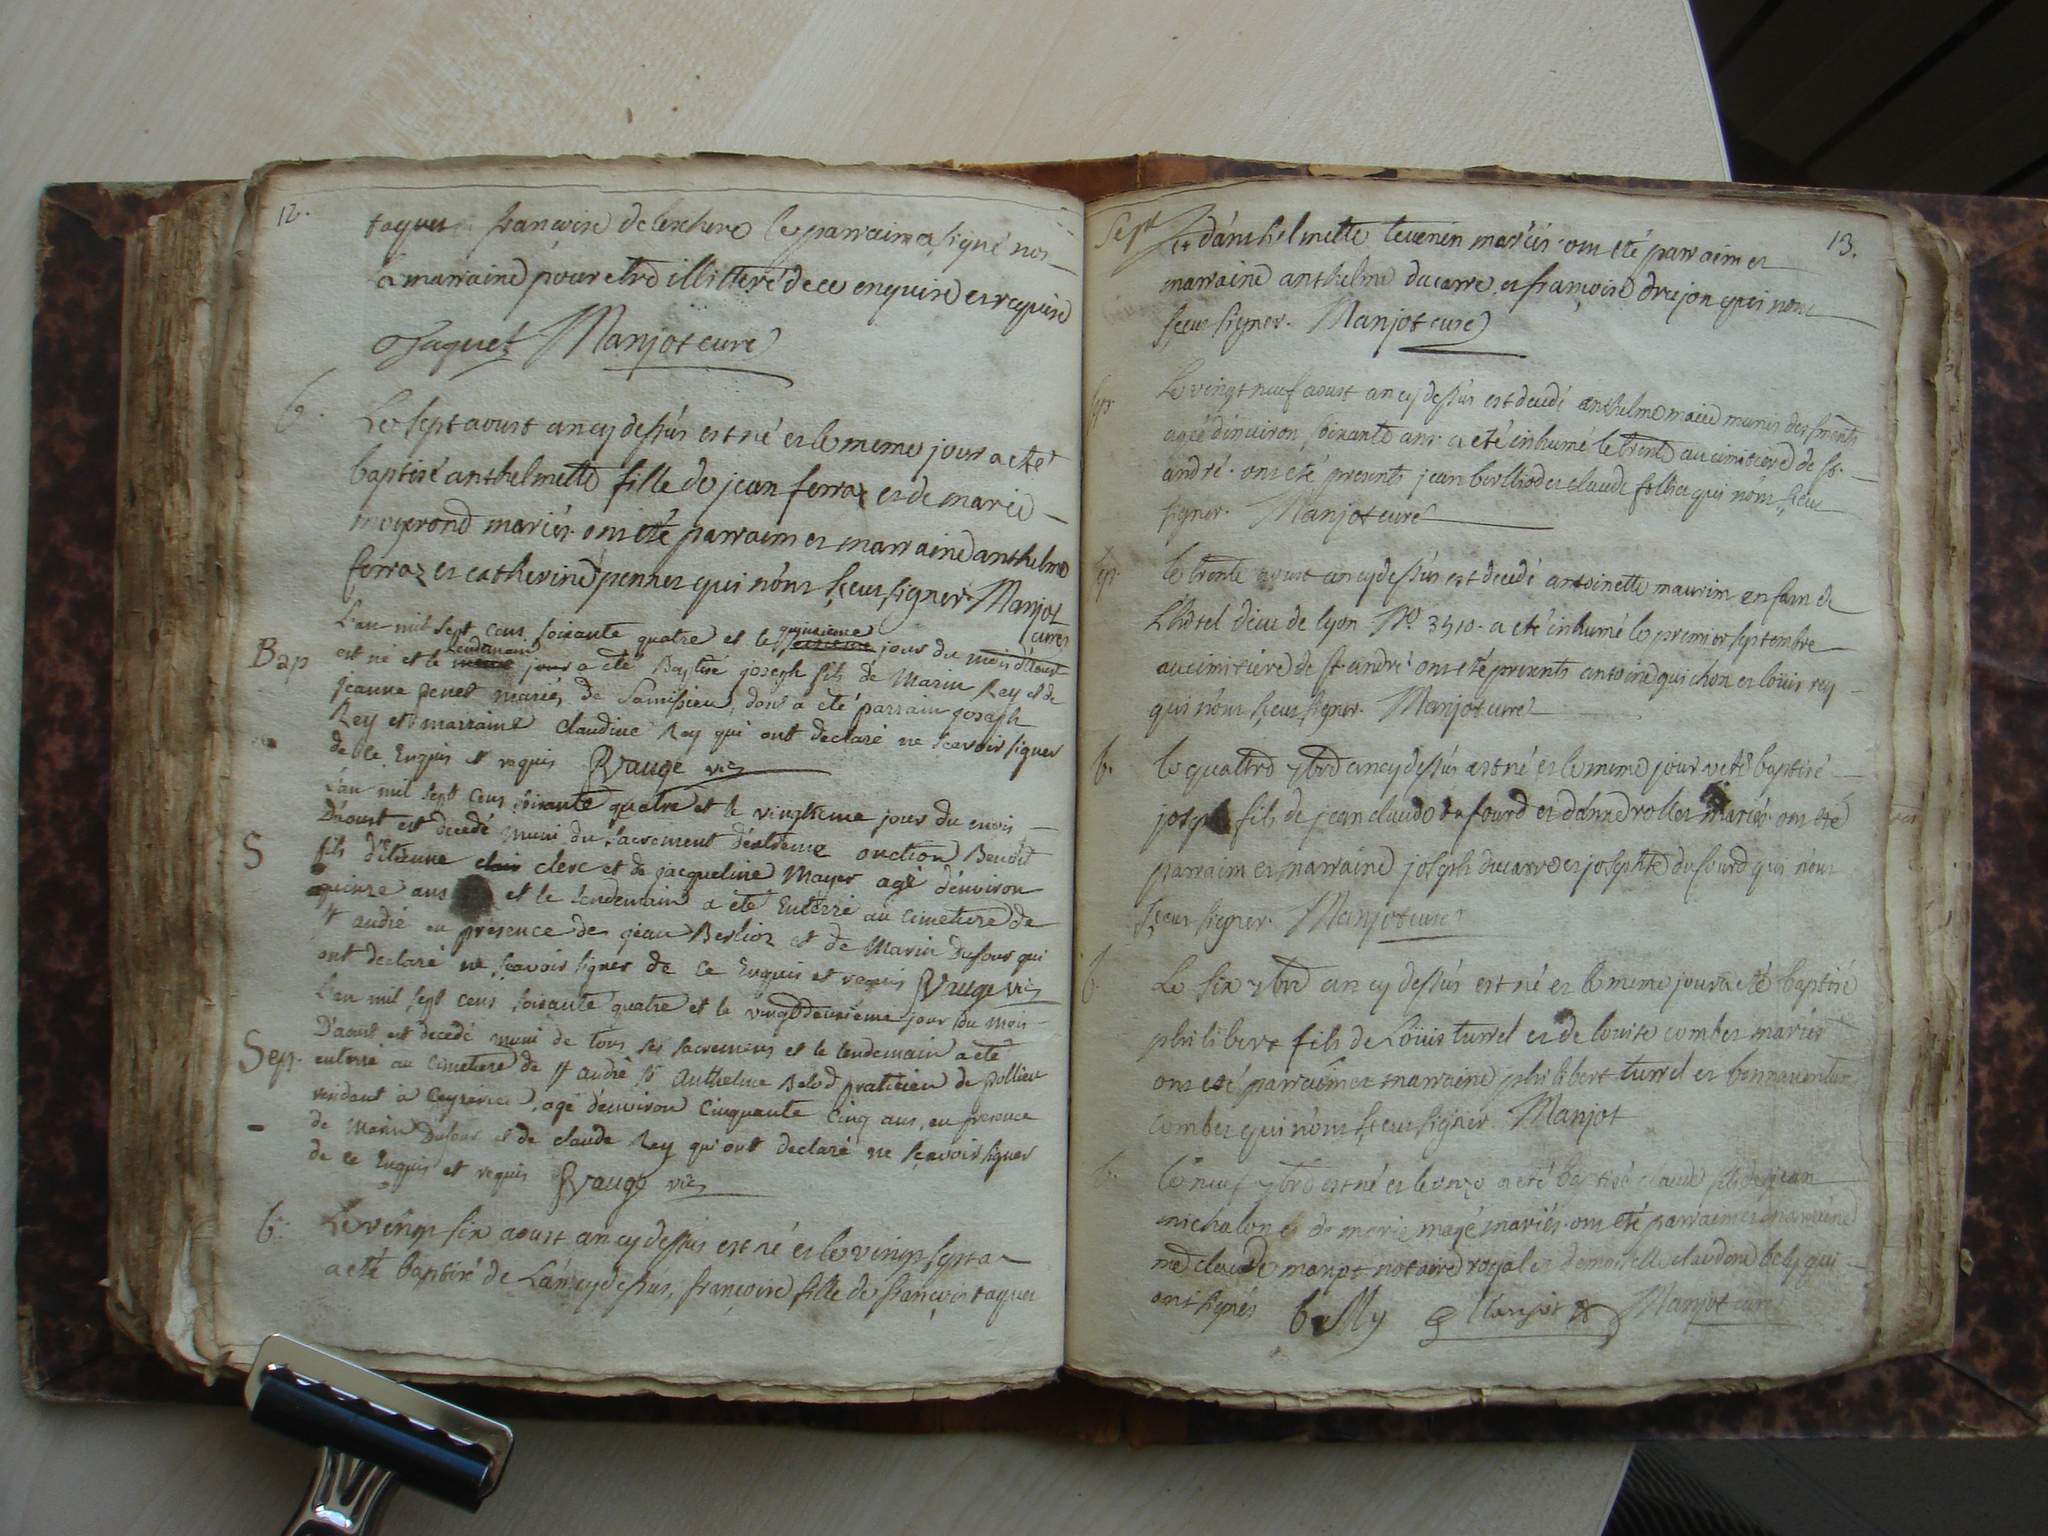 12.
françoise le parraim a signé non
la marraine pour etre illitteré de ce enquise et requise
Jaquet Manjot curé
b.
Le sept aoust an cy dessus est né et le meme jour a eté
baptisé anthelmette fille de jean ferraz et de marie
mariés. ont eté parraim et marraine anthelme
ferraz et catherine pennet qui n'ont sceu signer. Manjot
curé
L'an mil sept cens soixante quatre et le quinzieme jour du mois d'Aoust
Bap
est né et le lendemain a eté Baptisé joseph fils de Marin Rey et de
jeanne penet mariés de dont a eté parrain joseph
Rey et marraine claudine Rey qui ont declaré ne scavoir signer
de ce Enquis et requis Vauge vic
L'an mil sept cens soixante quatre et le vingtieme jour du mois
D'aoust est decedé muni du sacrement d'extreme onction Benoit
S
fils d'etienne clerc et de jacqueline Mayer agé d'environ
quinze ans et le lendemain a eté Enterré au cimetiere de
st andré en presence de jean Berlioz et de Marin Dufour qui
ont declaré ne scavoir signer de ce Enquis et requis Vauge vic
L'an mil sept cens soixante quatre et le vingt deuxieme jour du mois
D'aoust est decedé muni de tous ses sacremens et le lendemain a eté
Sep.
enterré au cimetiere de st andré sr Anthelme Belod praticien de pollieu
residant à Ceyzerieu, agé d'environ cinquante cinq ans, en presence
de Marin Dufour et de claude Rey qui ont declaré ne scavoir signer
de ce Enquis et requis Vauge vic
b.
Le vingt six aoust an cy dessus est né et le vingt sept a
a eté baptisé de L'an cy dessus, françoise fille de françois taquet
Sept
13.
et d'anthelmette tevenin mariés. ont eté parraim et
marraine anthelme ducarre et françoise drujon qui n'ont
sceu signer. Manjot curé
sep.
Le vingt neuf aoust an cy dessus est decedé anthelme muni des sments
agé d'environ soixante ans. a eté inhumé le trente au cimitiere de st.
andré. ont eté presents jean berlliod et claude qui n'ont sceu
signer. Manjot curé
sep.
le trente aoust an cy dessus est decedé antoinette maurim enfam de
L'hotel dieu de lyon No. 3510. a eté inhumé le premier septembre
au cimitiere de st andré ont eté presents antoine guichon et louis rey
qui n'ont sceu signer. Manjot curé
b.
le quattre 7bre an cy dessus est né et le meme jour a eté baptisé
joseph fils de jean claude dufourd et d'anne rollet mariés. ont eté
parraim et marraine joseph ducarre et josephte dufourd qui n'ont
sceu signer. Manjot curé
b.
Le six 7bre an cy dessus est né et le meme jour a eté baptisé
philibert fils de Loüis turrel et de louise combet mariés
ont eté parraim et marraine philibert turrel et bonnaventure
combet qui n'ont sceu signer. Manjot
b.
le neuf 7bre est né et le onze a eté baptisé claude fils de jean
michalon et de marie magé mariés. ont eté parraim et marraine
me claude manjot notaire royal et demoiselle claudine belly qui
ont signés belly Manjot Manjot curé